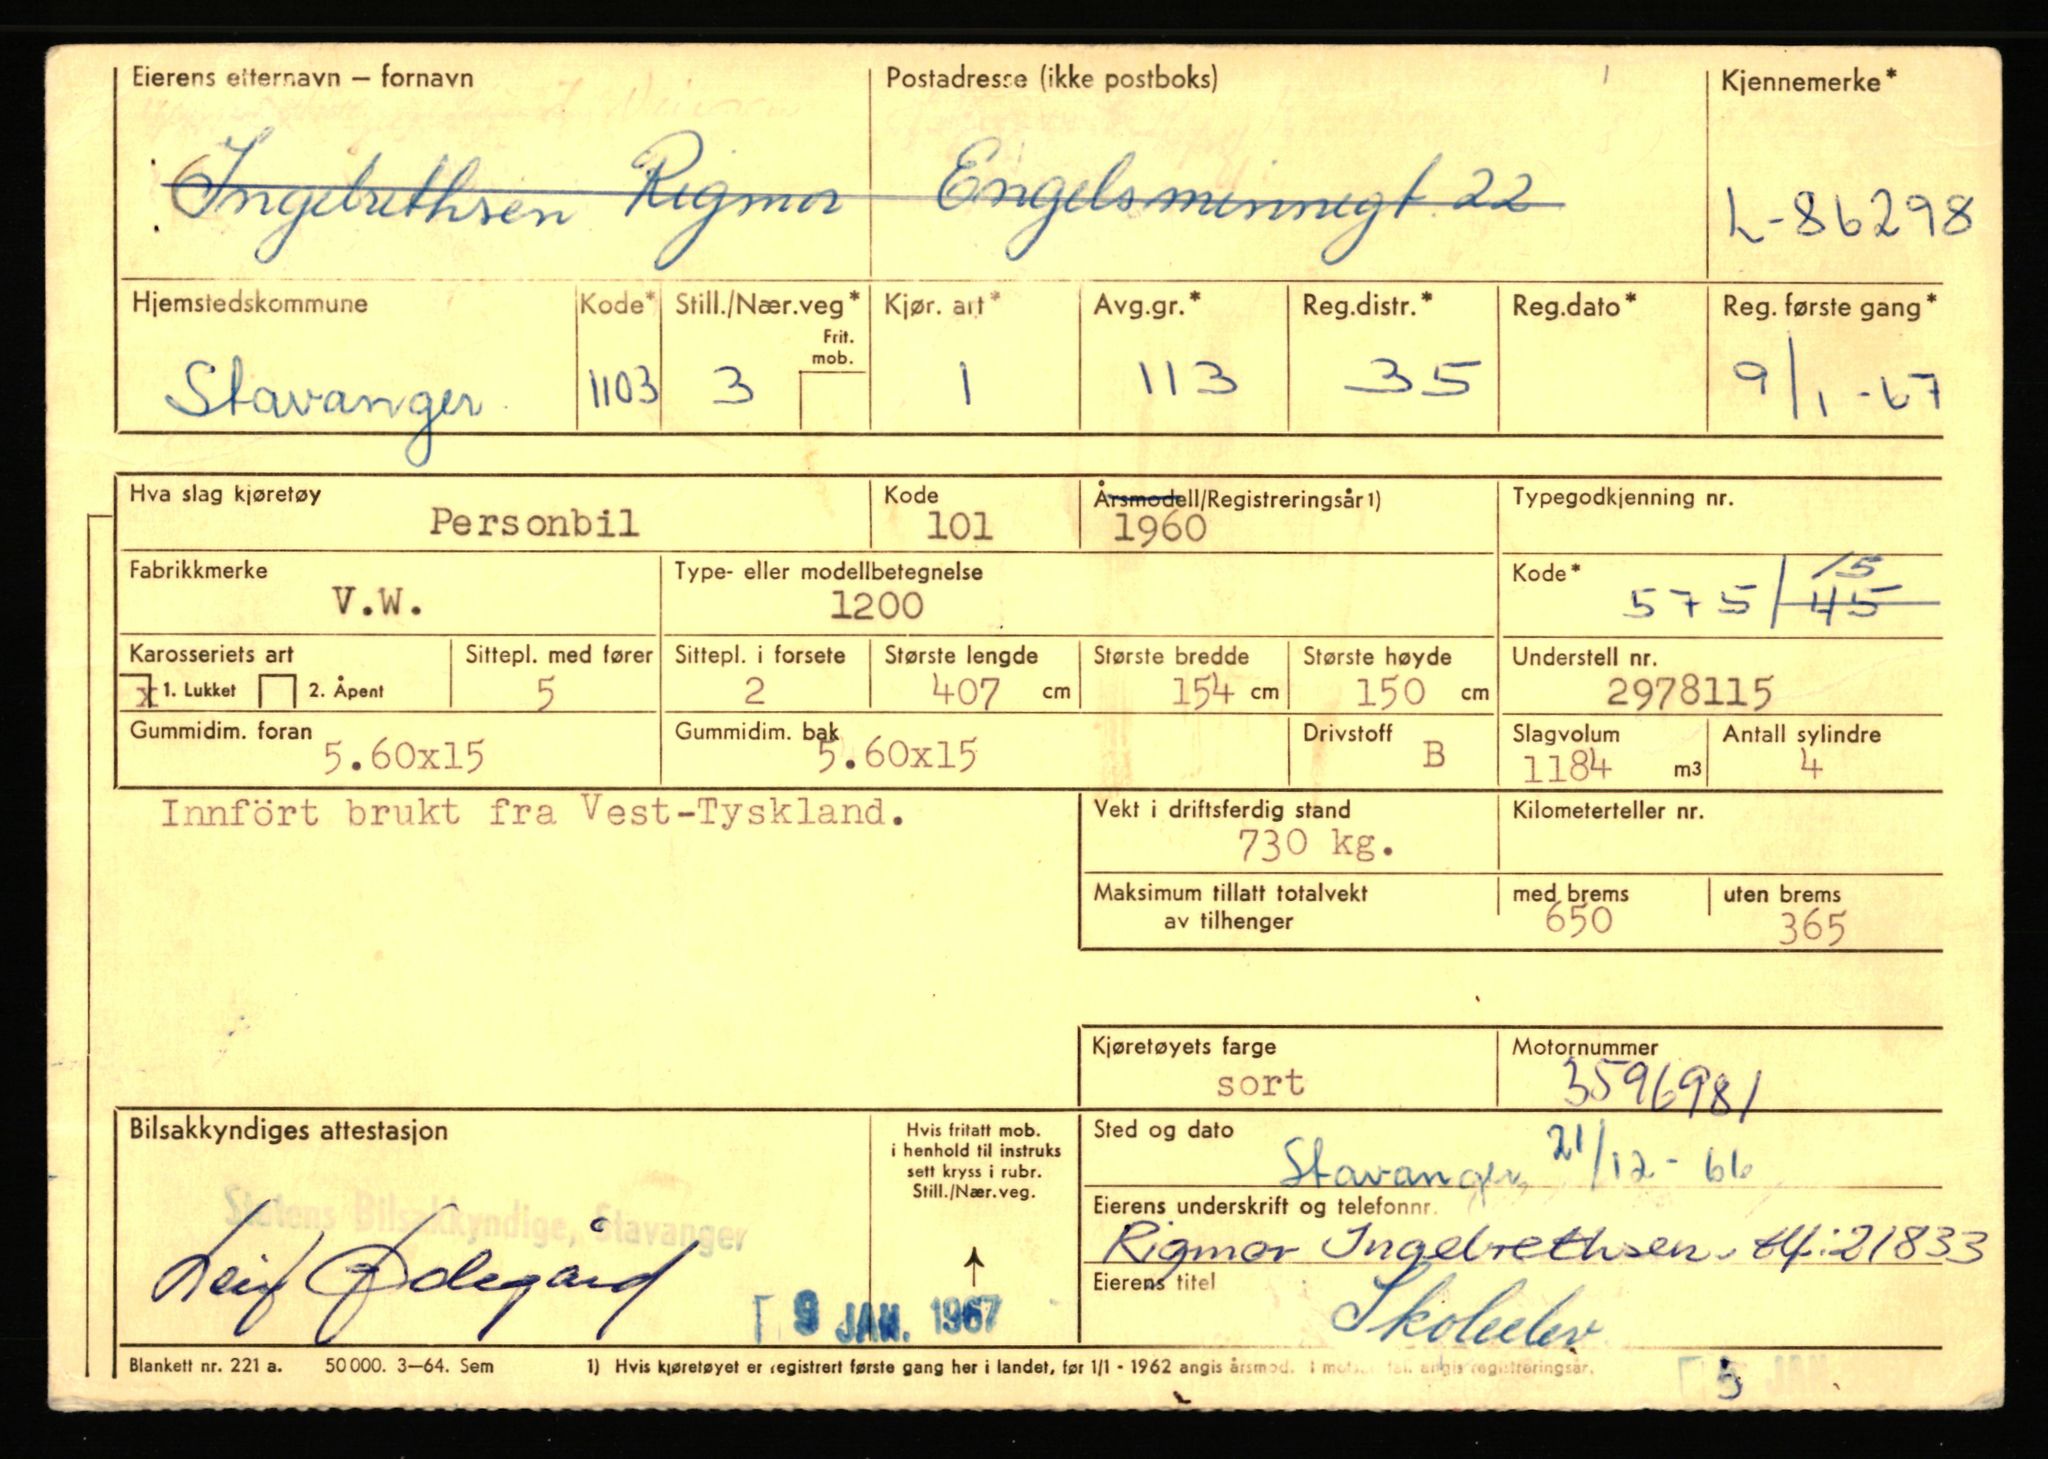 Eierens etternavn – fornavn Postadresse (ikke postboks) Kjennemerke*
Ingebrethsen Rigmor Engelsminnegt 22 L-86298
Hjemstedskommune Kode* Still./Nær.veg* Kjør. art* Avg.gr.* Reg.distr.* Reg.dato* Reg. første gang*
Frit. mob.
Stavanger 1103 3 1 113 35 9/1-67
Hva slag kjøretøy Kode Årsmodell/Registreringsår 1) Typegodkjenning nr.
Personbil 101 1960
Fabrikkmerke Type- eller modellbetegnelse Kode* 15
V.W. 1200 575/45
Karosseriets art Sittepl. med fører Sittepl. i forsete Største lengde Største bredde Største høyde Understell nr.
x 1. Lukket 2. Åpent 5 2 407 cm 154 cm 150 cm 2978115
Gummidim. foran Gummidim. bak Drivstoff Slagvolum Antall sylindre
5.60x15 5.60x15 B 1184 m3 4
Innfört brukt fra Vest-Tyskland. Vekt i driftsferdig stand Kilometerteller nr.
730 kg.
Maksimum tillatt totalvekt med brems uten brems
av tilhenger 650 365
Kjøretøyets farge Motornummer
sort 3596981
Bilsakkyndiges attestasjon Hvis fritatt mob. Sted og dato
i henhold til instruks
sett kryss i rubr.
Still./Nær.veg.
Stavanger, 21/12-66
Statens Bilsakkyndige, Stavanger
Eierens underskrift og telefonnr.
Leif Ødegård Rigmor Ingebrethsen. tlf: 21833
Eierens titel
9 JAN. 1967 Skoleelev
Blankett nr. 221 a. 50 000. 3–64. Sem 1) Hvis kjøretøyet er registrert første gang her i landet, før 1/1 - 1962 angis årsmod. I motsatt fall angis registreringsår.
5 JAN.